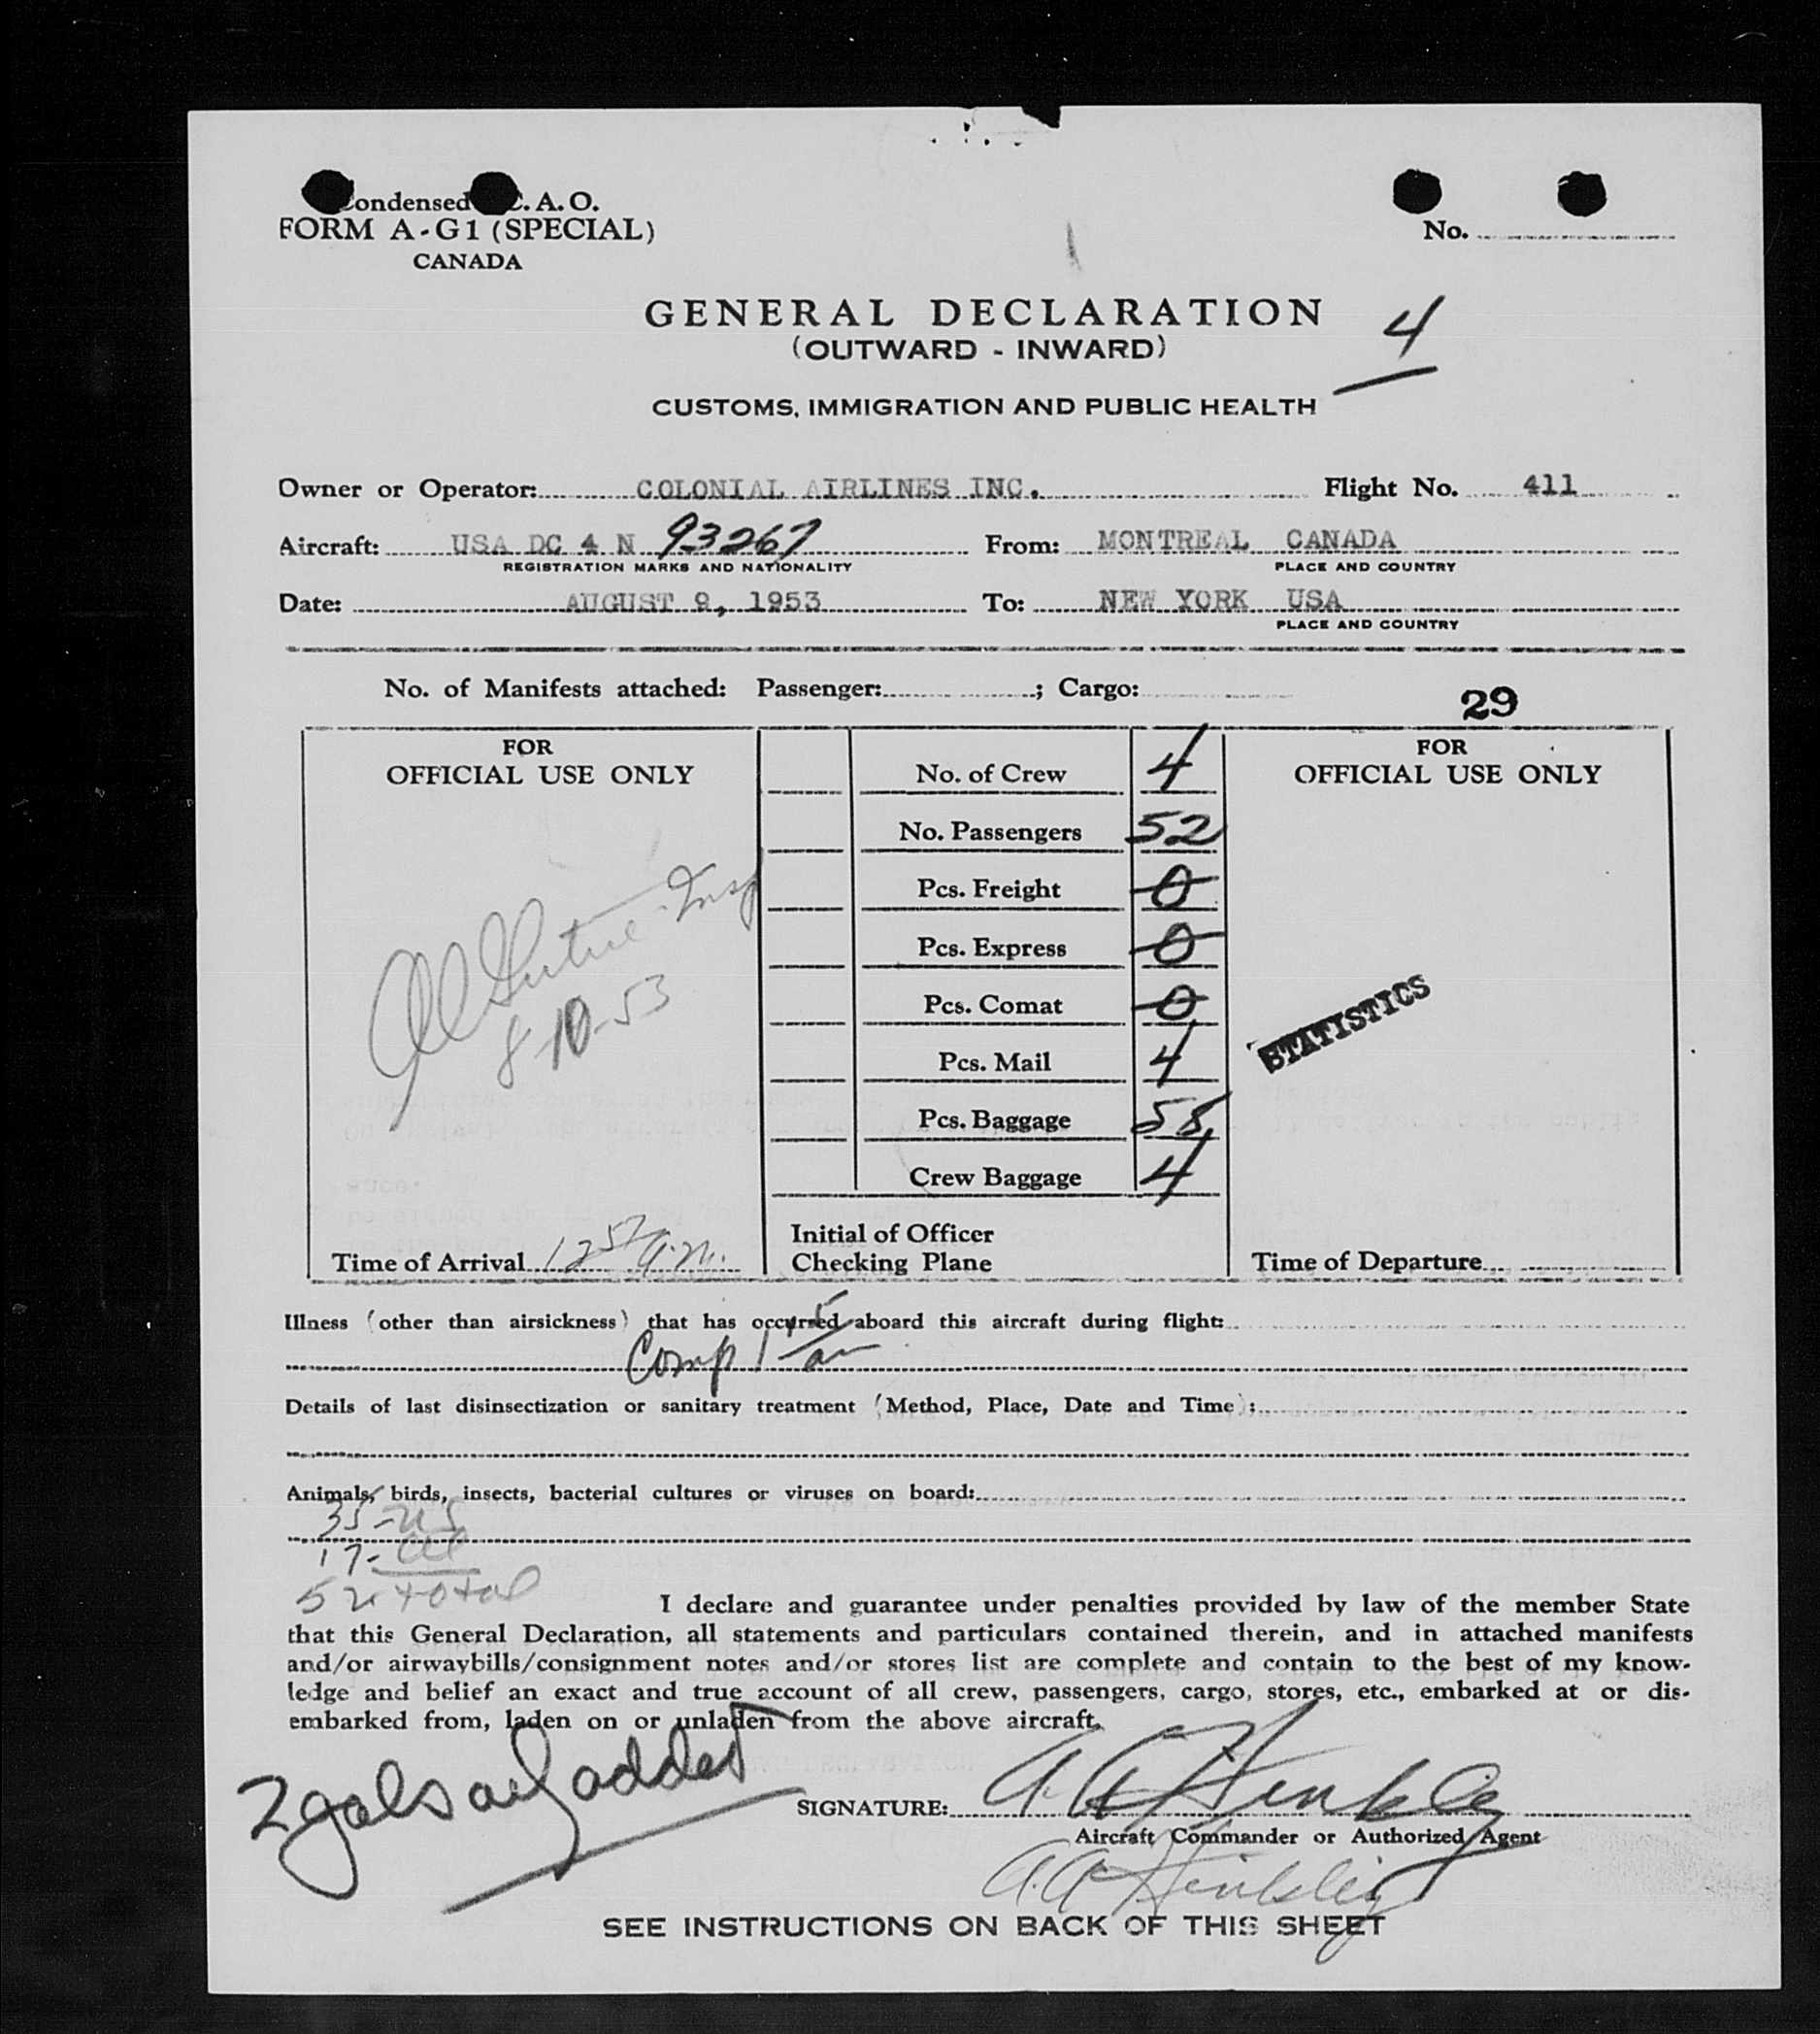 Condensed I.C.A.O.
FORM A-G1 (SPECIAL)
CANADA
No.
GENERAL DECLARATION
4
(OUTWARD - INWARD)
CUSTOMS, IMMIGRATION AND PUBLIC HEALTH
Owner or Operator: COLONIAL AIRLINES INC. Flight No. 411
Aircraft: USA DC 4 N 93267 From: MONTREAL CANADA
REGISTRATION MARKS AND NATIONALITY PLACE AND COUNTRY
Date: AUGUST 9, 1953 To: NEW YORK USA
PLACE AND COUNTRY
No. of Manifests attached: Passenger: ; Cargo:
29
FOR
OFFICIAL USE ONLY
Insp
8-10-53
Time of Arrival 12 57 a.m.
No. of Crew 4
No. Passengers 52
Pcs. Freight 0
Pcs. Express 0
Pcs. Comat 0
Pcs. Mail 4
Pcs. Baggage 58
Crew Baggage 4
Initial of Officer
Checking Plane
FOR
OFFICIAL USE ONLY
STATISTICS
Time of Departure
Illness (other than airsickness) that has occurred aboard this aircraft during flight:
Comp 1 45 am
Details of last disinsectization or sanitary treatment (Method, Place, Date and Time):
Animals, birds, insects, bacterial cultures or viruses on board:
35-US
17-al
52 total
I declare and guarantee under penalties provided by law of the member State
that this General Declaration, all statements and particulars contained therein, and in attached manifests
and/or airwaybills/consignment notes and/or stores list are complete and contain to the best of my know-
ledge and belief an exact and true account of all crew, passengers, cargo, stores, etc., embarked at or dis-
embarked from, laden on or unladen from the above aircraft.
2 gals oil added
SIGNATURE: A. A. Hinkley
Aircraft Commander or Authorized Agent
A. A. Hinkley
SEE INSTRUCTIONS ON BACK OF THIS SHEET